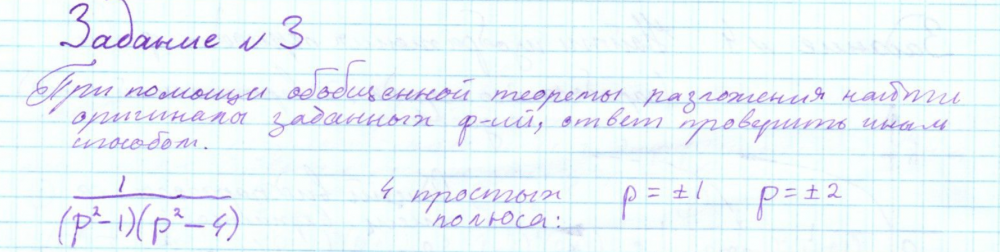 Задание №3
При помощи обобщенной теоремы разложения найти
оригиналы заданных ф-ий, ответ проверить иным
способом.
1/((p²-1)(p²-4)) 4 простых полюса: p=±1 p=±2